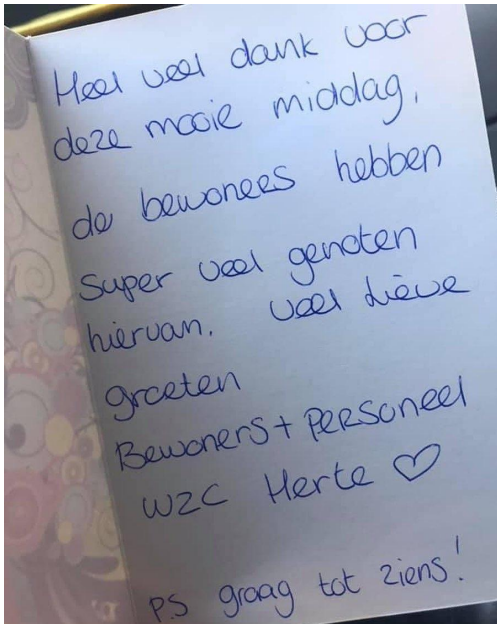 Heel veel dank voor
deze mooie middag,
de bewoners hebben
super veel genoten
hiervan. Veel Lieve
groeten
Bewoners + personeel
WZC Herte ♡
P.S graag tot ziens!